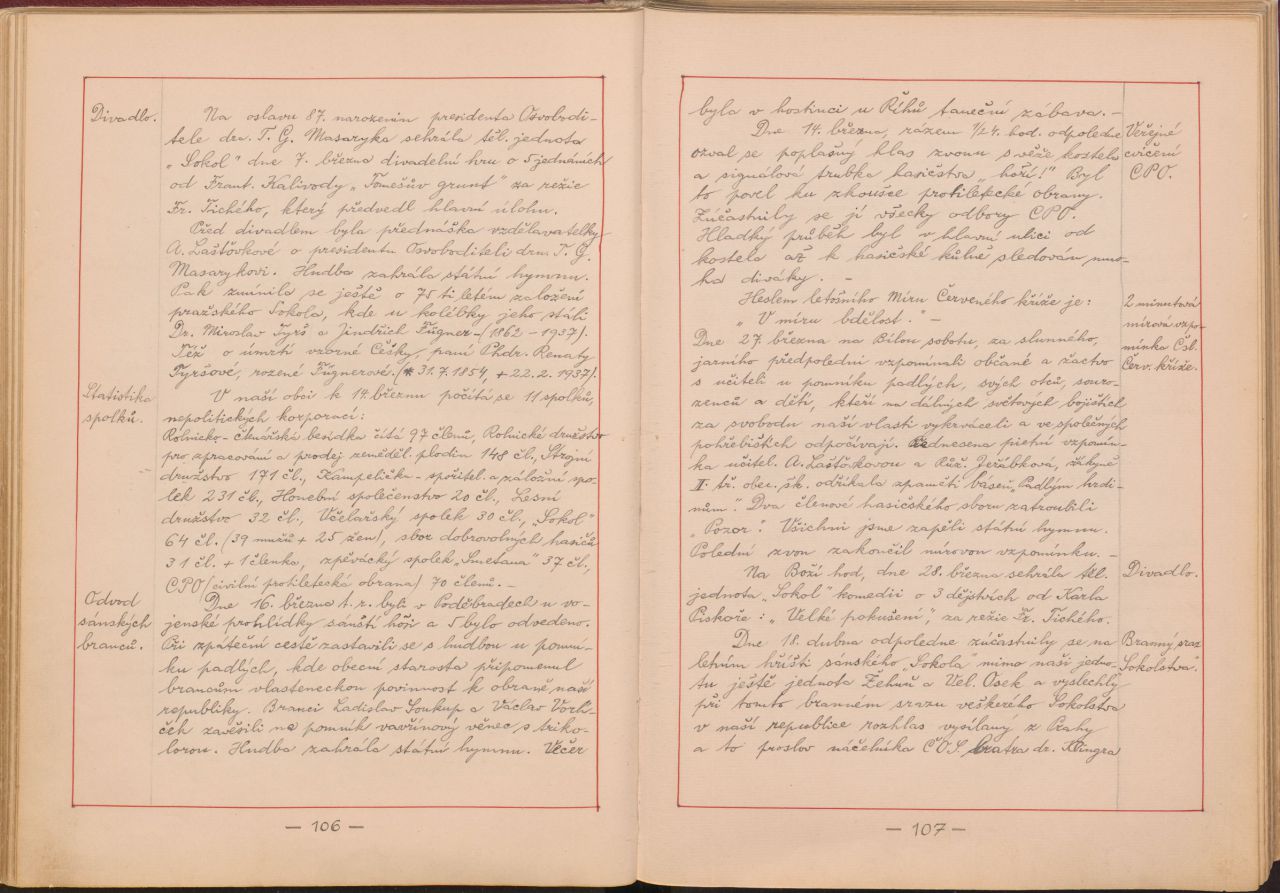 Divadlo.
Na oslavu 87. narozenin presidenta Osvobodi-
tele dra. T. G. Masaryka sehrála těl. jednota
„Sokol" dne 7. března divadelní hru o 5 jednáních
od Frant. Kalivody „Tomešův grunt" za režie
Fr. Tichého, který předvedl hlavní úlohu.
Před divadlem byla přednáška vzdělavatelky
A. Laštovkové o presidentu Osvoboditeli dru T. G.
Masarykovi. Hudba zahrála státní hymnu.
Pak zmínila se ještě o 75 ti letém založení
pražského Sokola, kde u kolébky jeho stáli
Dr. Miroslav Tyrš a Jindřich Fügner (1862 – 1937).
Též o úmrtí vzorné Češky, paní Phdr. Renaty
Tyršové, rozené Fügnerové. (* 31. 7. 1854, + 22. 2. 1937).
Statistika
spolků.
V naší obci k 14. březnu počítá se 11 spolků,
nepolitických korporací:
Rolnicko-čtnářská besídka čítá 97 členů, Rolnické družstvo
pro zpracování a prodej zeměděl. plodin 148 čl., Strojní
družstvo 171 čl., Kampelička – spořitel. a záložní spo-
lek 231 čl., Honební společenstvo 20 čl., Lesní
družstvo 32 čl., Včelařský spolek 30 čl., „Sokol"
64 čl. (39 mužů + 25 žen), sbor dobrovolných hasičů
31 čl. + 1 členka, zpěvácký spolek „Smetana" 37 čl.,
CPO (civilní protiletecká obrana) 70 členů. –
Odvod
sánských
branců.
Dne 16. března t. r. byli v Poděbradech u vo-
jenské prohlídky sanští hoši a 5 bylo odvedeno.
Při zpáteční cestě zastavili se s hudbou u pomní-
ku padlých, kde obecní starosta připomenul
brancům vlasteneckou povinnost k obraně naší
republiky. Branci Ladislav Soukup a Václav Vorlí-
ček zavěsili na pomník vavřínový věnec s triko-
lorou. Hudba zahrála státní hymnu. Večer
— 106 —
byla v hostinci u Říhů taneční zábava. –
Veřejné
cvičení
CPO.
Dne 14. března, rázem 1/2 4. hod. odpoledne
ozval se poplašný hlas zvonu s věže kostela
a signálová trubka hasičstva „hoří!" Byl
to povel ku zkoušce protiletecké obrany.
Zúčastnily se jí všecky odbory CPO.
Hladký průběh byl v hlavní ulici od
kostela až k hasičské kůlně sledován mno-
ha diváky. –
2 minutová
mírová vzpo-
mínka Čsl.
Červ. kříže.
Heslem letošního Míru Červeného kříže je:
„V míru bdělost." –
Dne 27. března na Bílou sobotu, za slunného,
jarního předpoledni vzpomínali občané a žactvo
s učiteli u pomníku padlých, svých otců, souro-
zenců a dětí, kteří na dálných světových bojištích
za svobodu naší vlasti vykrváceli a ve společných
pohřebištích odpočívají. Přednesena pietní vzpomín-
ka učitel. A. Laštovkovou a Růž. Jeřábková, žákyně
II. tř. obec. šk. odříkala zpaměti báseň „Padlým hrdi-
nům". Dva členové hasičského sboru zatroubili
„Pozor". Všichni jsme zapěli státní hymnu.
Polední zvon zakončil mírovou vzpomínku. –
Divadlo.
Na Boží hod, dne 28. března sehrála těl.
jednota „Sokol" komedii o 3 dějstvích od Karla
Piskoře: „Velké pokušení", za režie Fr. Tichého.
Branný sraz
„Sokolstva".
Dne 18. dubna odpoledne zúčastnily se na
letním hřišti sánského „Sokola" mimo naši jedno-
tu ještě jednota Žehuň a Vel. Osek a vyslechly
při tomto branném srazu veškerého Sokolstva
v naší republice rozhlas vysílaný z Prahy
a to proslov náčelníka ČOS. bratra dr. Klingra
— 107 —